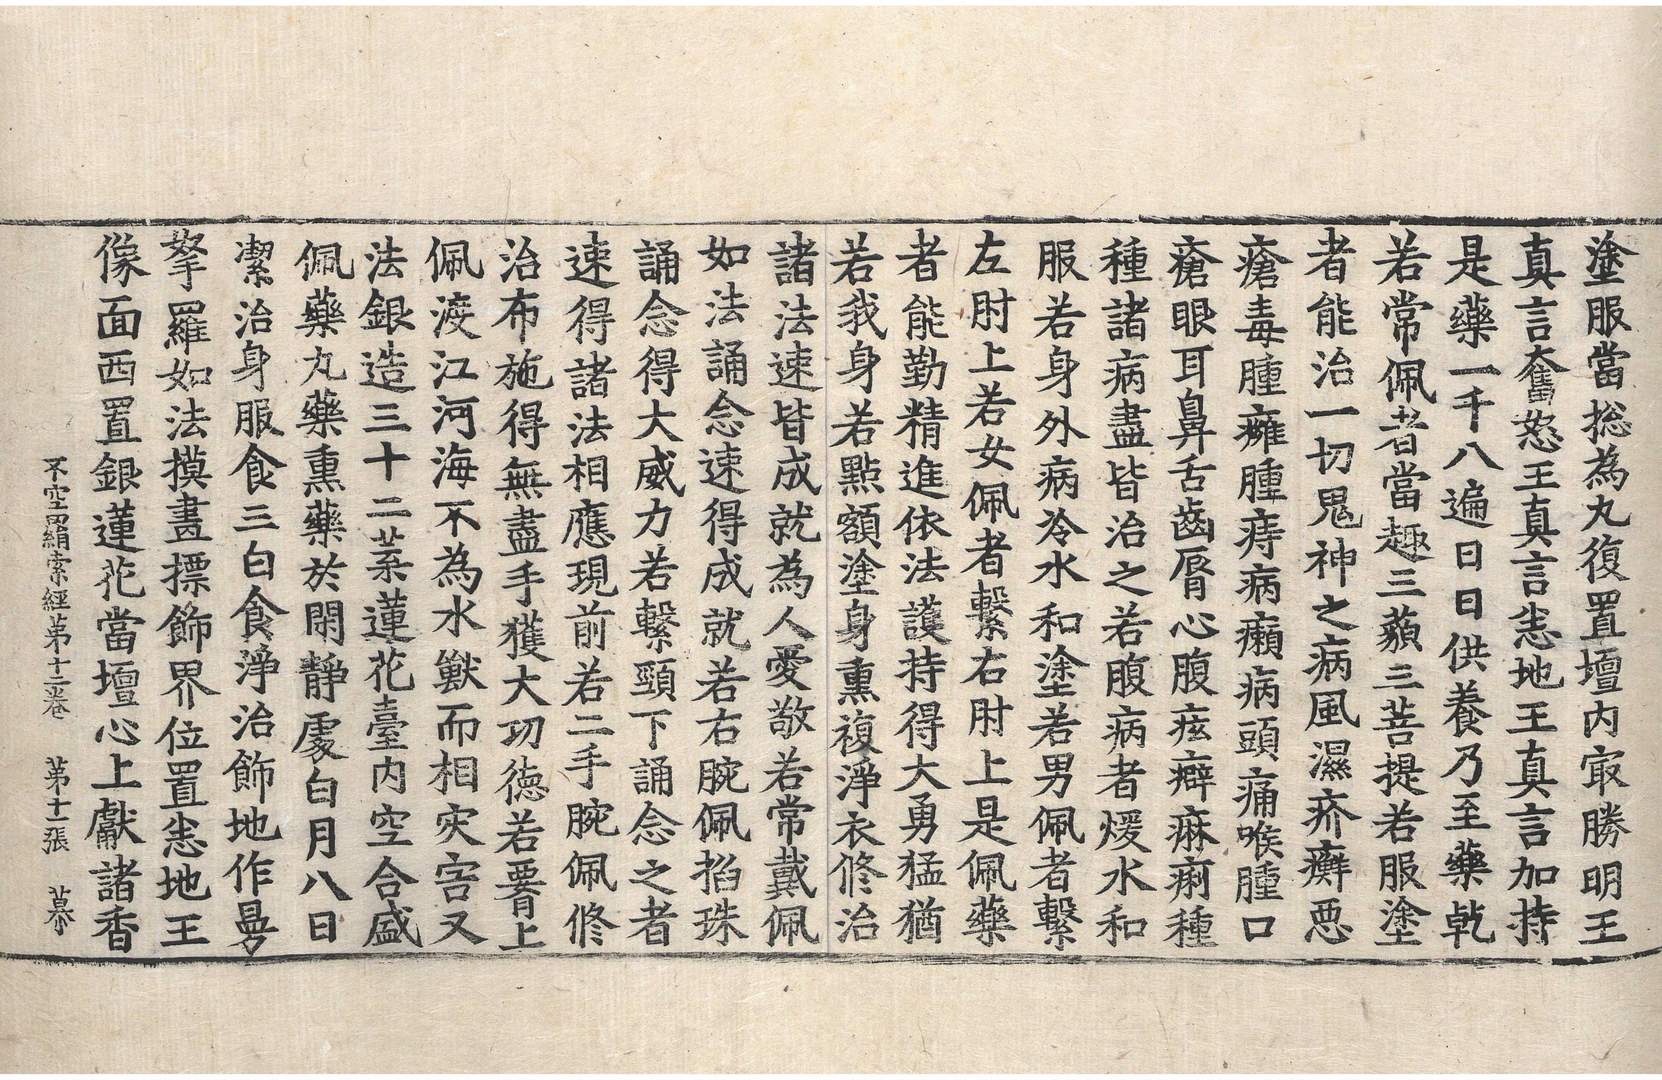 塗服當捴為丸復置壇内㝡勝明王
真言奮怒王真言恚地王真言加持
是藥一千八遍日日供養乃至藥乾
若常佩者當趣三藐三菩提若服塗
者能治一切鬼神之病風濕疥癬惡
瘡毒腫癰腫痔病癩病頭痛喉腫口
瘡眼耳鼻舌齒脣心腹痃癖痳痢種
種諸病盡皆治之若腹病者煖水和
服若身外病冷水和塗若男佩者繫
左肘上若女佩者繫右肘上是佩藥
者能勤精進依法護持得大勇猛猶
若我身若點額塗身熏複淨衣修治
諸法速皆成就為人愛敬若常戴佩
如法誦念速得成就若右腕佩掐珠
誦念得大威力若繫頸下誦念之者
速得諸法相應現前若二手腕佩修
治布施得無盡手獲大功德若要上
佩渡江河海不為水獸而相灾害又
法銀造三十二葉蓮花臺内空合盛
佩藥丸藥熏藥於閑靜處白月八日
潔治身服食三白食淨治飾地作曼
拏羅如法摸畫摽飾界位置恚地王
像面西置銀蓮花當壇心上獻諸香
不空羂索經苐十二卷　苐十一張　慕